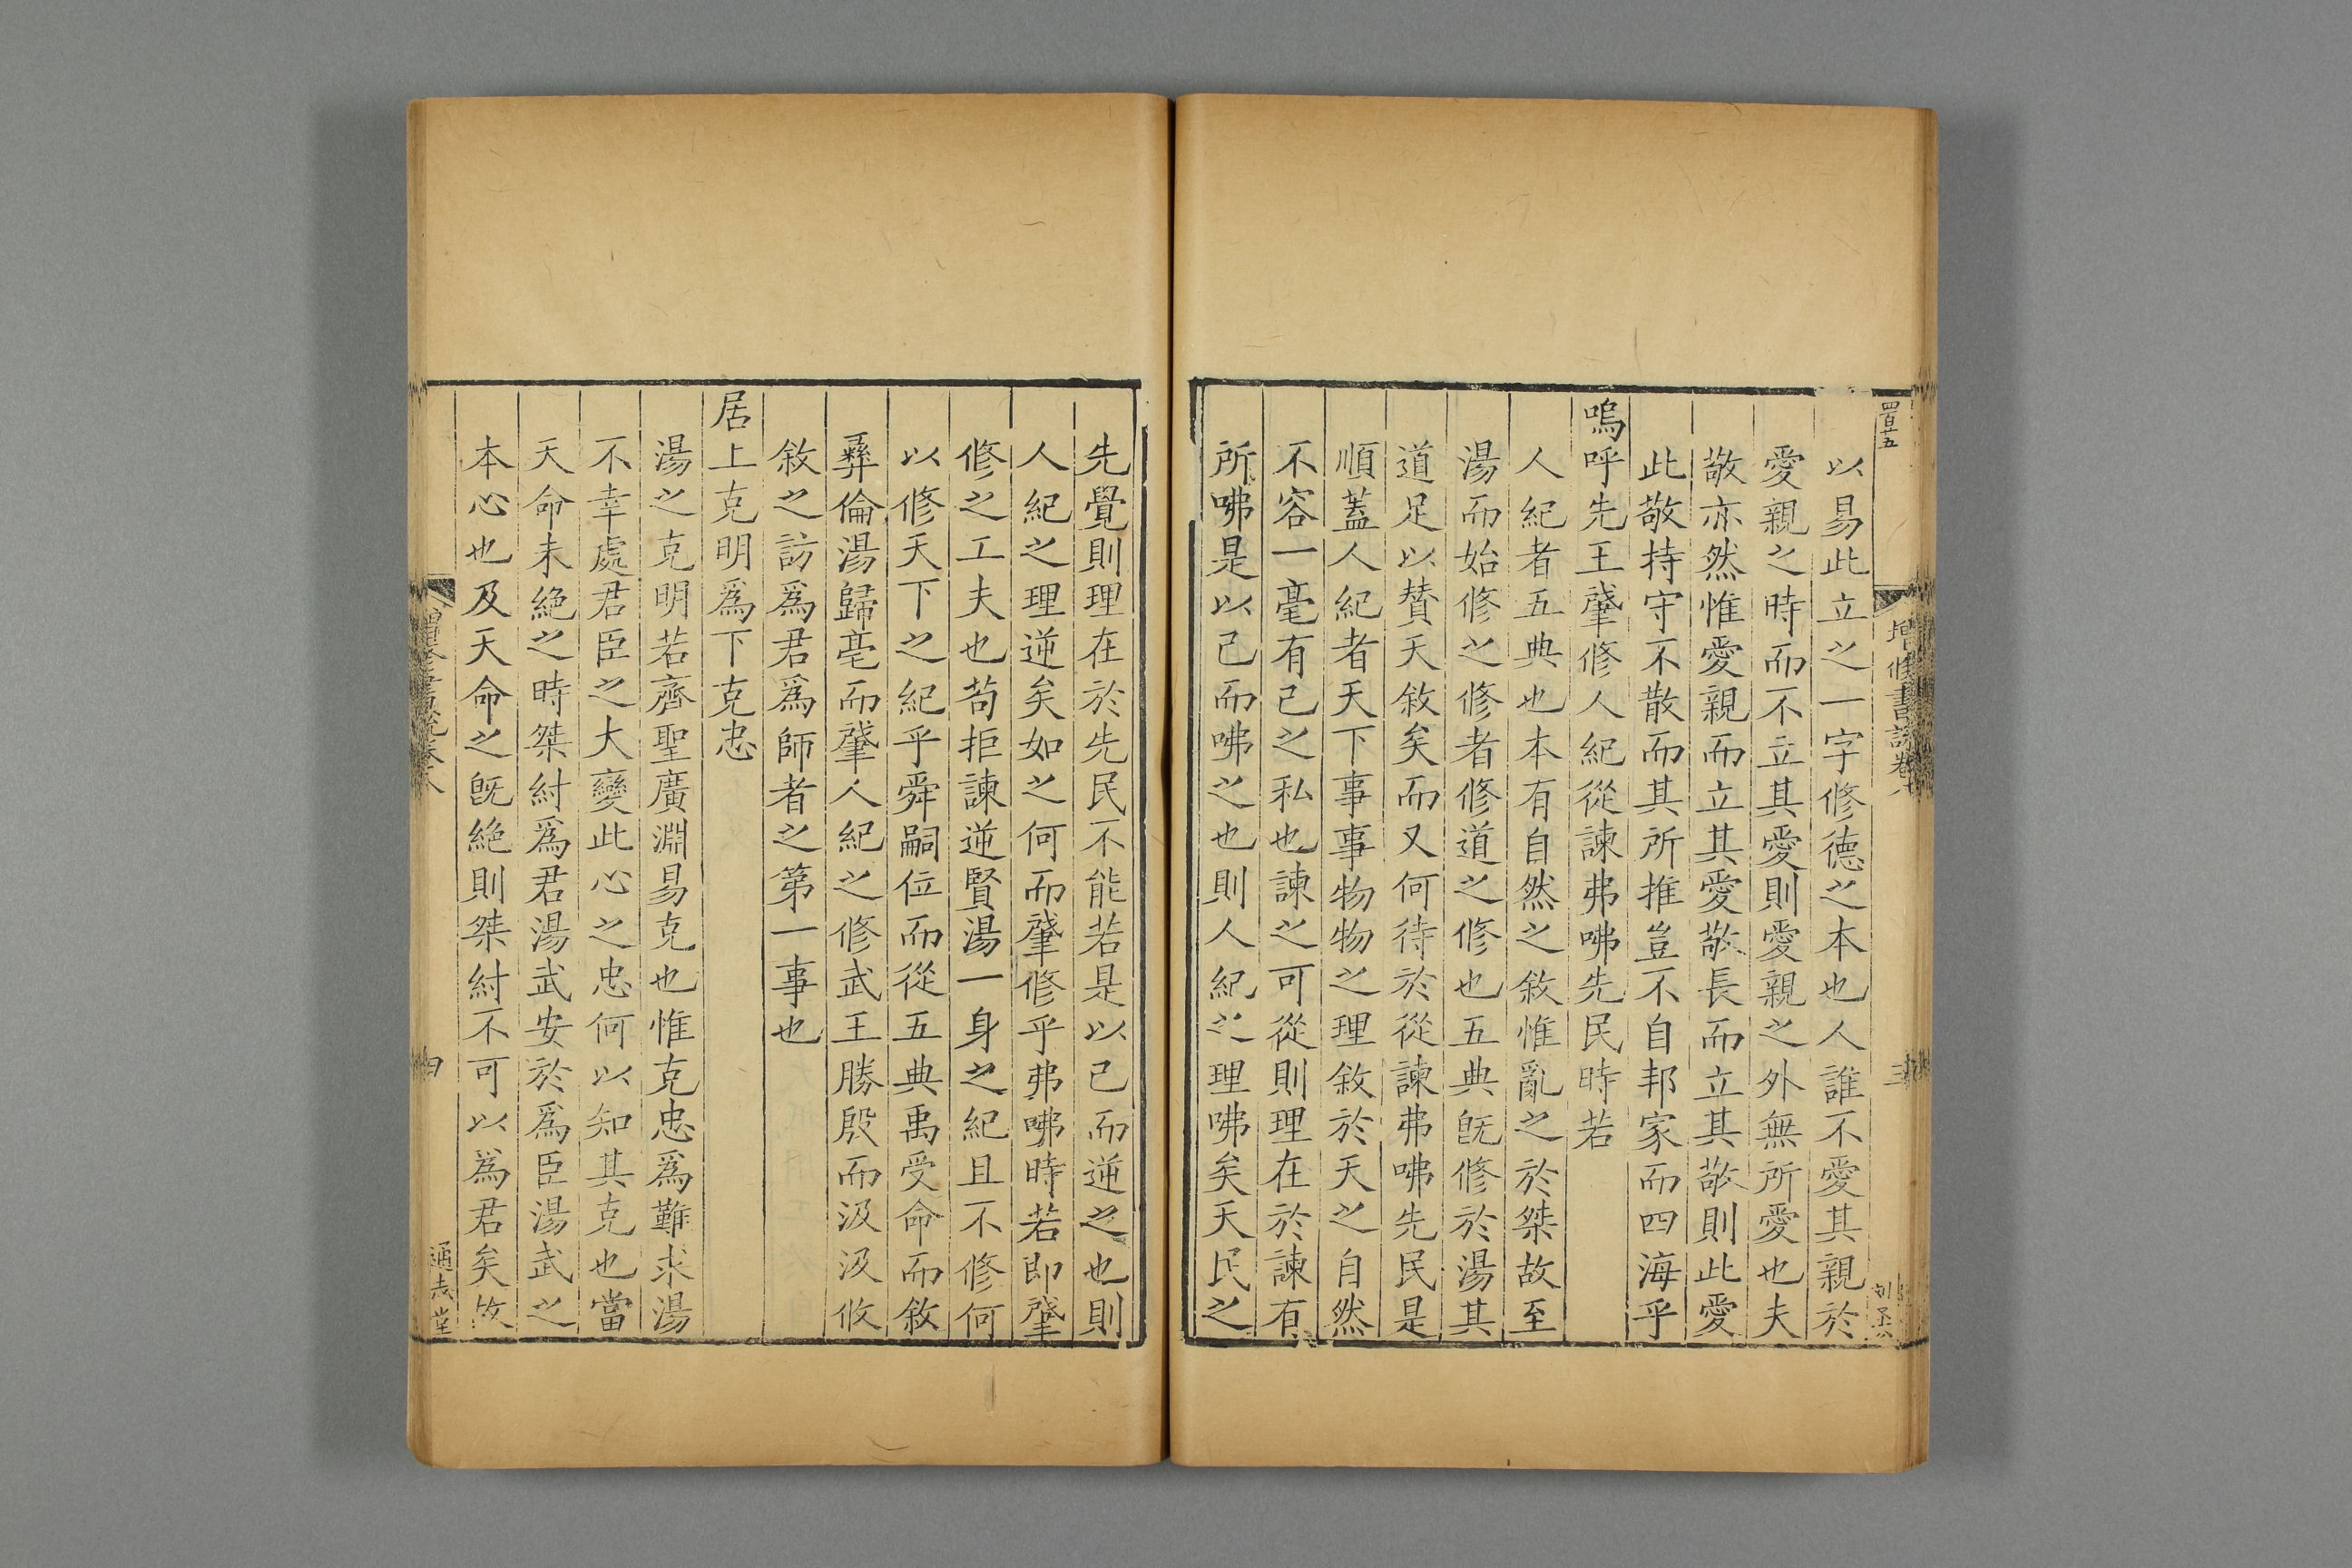 四百五
增修書說卷八
三
以易此立之一字修德之本也人誰不愛其親於
愛親之時而不立其愛則愛親之外無所愛也夫
敬亦然惟愛親而立其愛敬長而立其敬則此愛
此敬持守不散而其所推豈不自邦家而四海乎
嗚呼先王肇修人紀從諫弗咈先民時若
人紀者五典也本有自然之敘惟亂之於桀故至
湯而始修之修者修道之修也五典旣修於湯其
道足以賛天敘矣而又何待於從諫弗咈先民是
順蓋人紀者天下事事物物之理敘於天之自然
不容一毫有己之私也諫之可從則理在於諫有
所咈是以己而咈之也則人紀之理咈矣天民之
先覺則理在於先民不能若是以己而逆之也則
人紀之理逆矣如之何而肇修乎弗咈時若即肇
修之工夫也苟拒諫逆賢湯一身之紀且不修何
以修天下之紀乎舜嗣位而從五典禹受命而敘
彝倫湯歸亳而肇人紀之修武王勝殷而汲汲攸
敘之訪爲君爲師者之第一事也
居上克明爲下克忠
湯之克明若齊聖廣淵易克也惟克忠爲難求湯
不幸處君臣之大變此心之忠何以知其克也當
天命未絕之時桀紂爲君湯武安於爲臣湯武之
本心也及天命之旣絕則桀紂不可以爲君矣故
四
通志堂